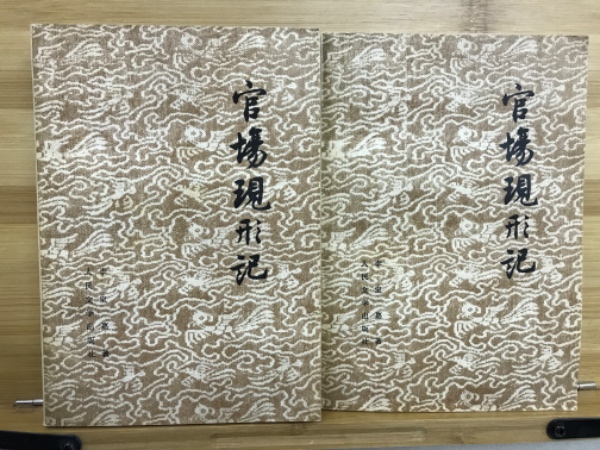 官場現形記
李宝嘉著
人民文学出版社
官場現形記
李宝嘉著
人民文学出版社